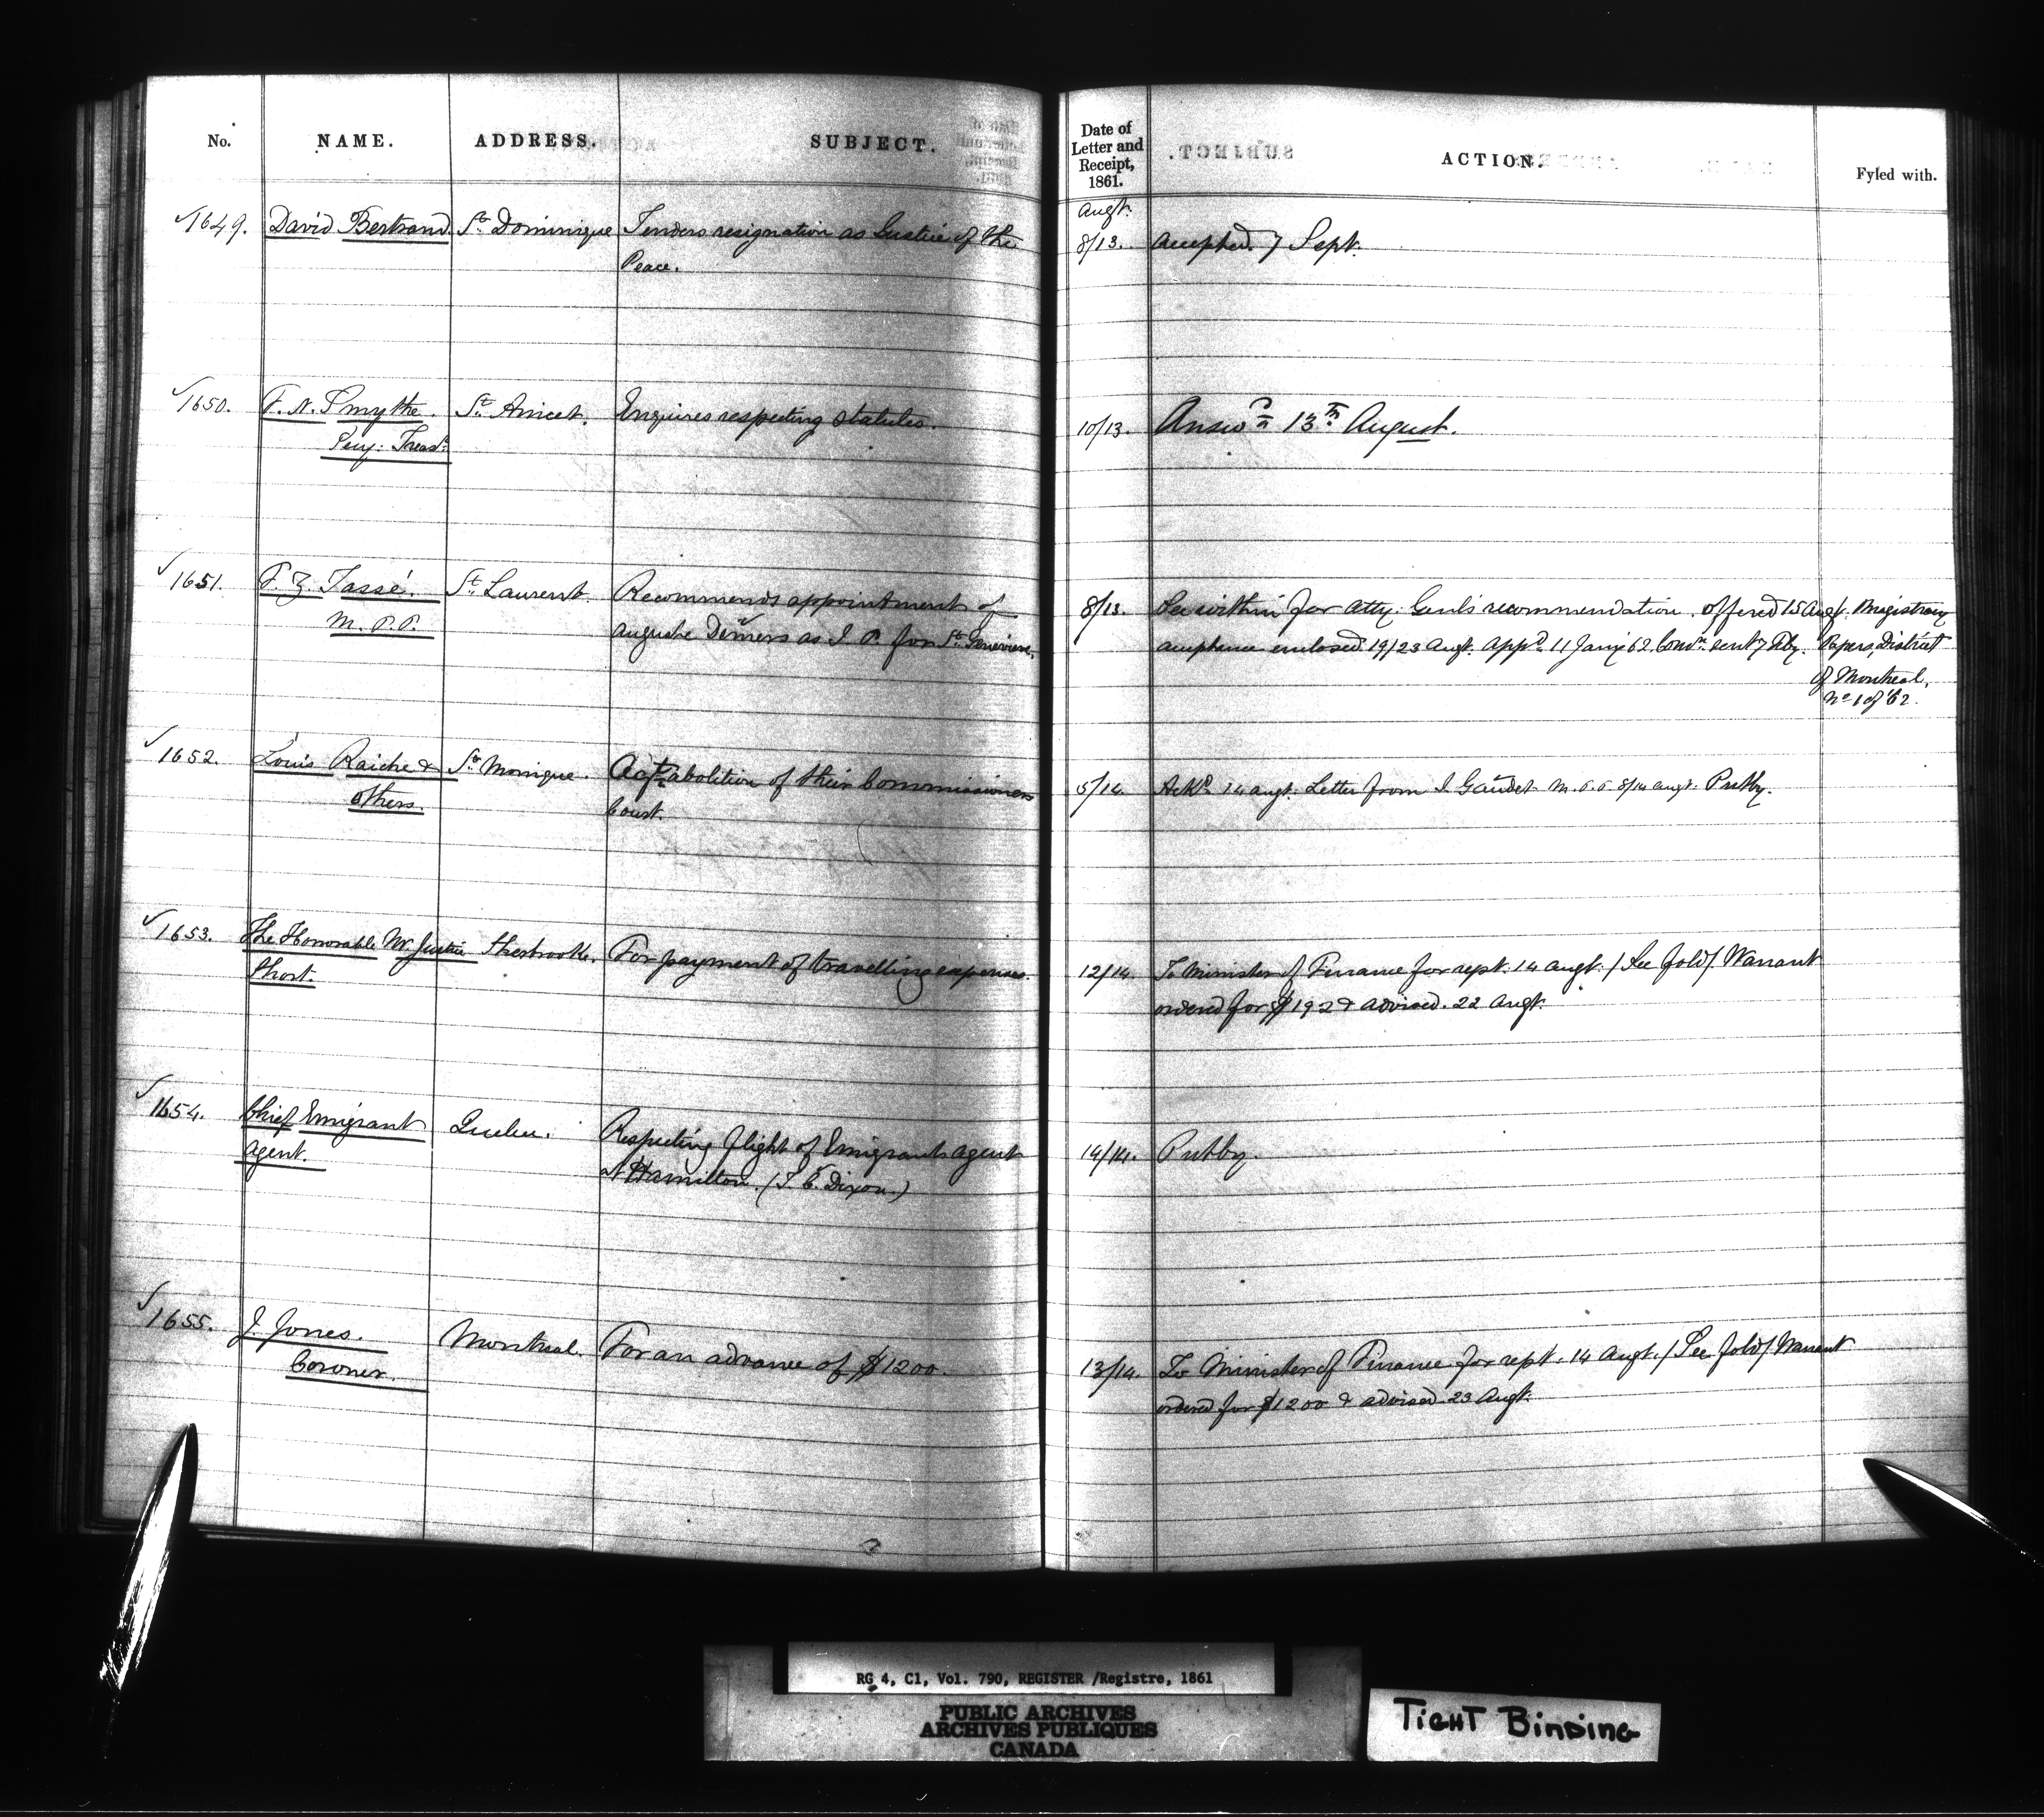 No. NAME. ADDRESS. SUBJECT. Date of Letter and Receipt, 1861. ACTION. Fyled with.
Augt.
1649. David Bertrand St. Dominique Tenders resignation as Justice of the 8/13. Accepted. 7 Sept.
Peace.
1650. F. N. Smythe. St. Anicet. Enquires respecting statutes. 10/13. Answd. 13th August.
Secy: Treasr.
1651. F. Z. Tassé. St. Laurent. Recommends appointment of 8/13. See within for Atty. Genl's recommendation. Offered 15 Augt. Magistracy
M.P.P. Auguste Demers as J. P. for Ste. Genevieve. acceptance enclosed 19/23 Augt. Appd. 11 Jany 62. Comn. sent 7 Feby. Papers, District
of Montreal,
No. 1 of 62.
1652. Louis Raiche & St. Monique. Agst. abolition of their Commissioners 5/14. Ackd. 14 Augt. Letter from J. Gaudet M.P.P. 8/14 Augt. Putby.
others. Court.
1653. The Honorable Mr. Justice Sherbrooke. For payment of travelling expenses. 12/14. To Minister of Finance for rept. 14 Augt. / See fold / Warrant
Short. ordered for $192 & advised. 22 Augt.
1654. Chief Emigrant Quebec. Respecting flight of Emigrant Agent 14/14. Putby.
Agent. at Hamilton. ( C. Dixon.)
1655. J. Jones. Montreal. For an advance of $1200. 13/14. To Minister of Finance for rept. 14 Augt. / See fold / Warrant
Coroner. ordered for $1200 & advised 23 Augt.
RG 4, C1, Vol. 790, REGISTER /Registre, 1861
PUBLIC ARCHIVES
ARCHIVES PUBLIQUES
CANADA
TIGHT BINDING